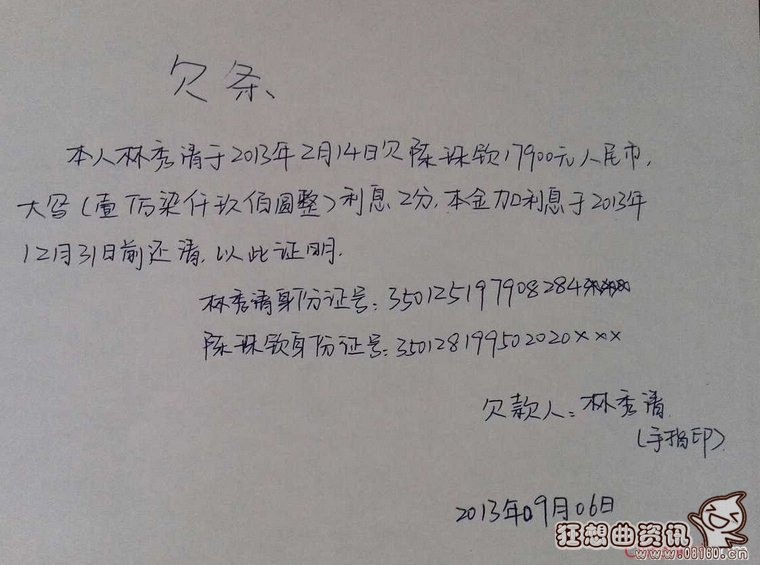 欠条、
本人林秀清于2013年2月14日欠陈珠钦17900元人民币,
大写(壹万柒仟玖佰圆整)利息2分,本金加利息于2013年
12月31日前还清,以此证明.
林秀清身份证号:350125197908284xxxx
陈珠钦身份证号:350128199502020xxx
欠款人:林秀清
(手指印)
2013年09月06日
狂想曲资讯
www.808160.cn